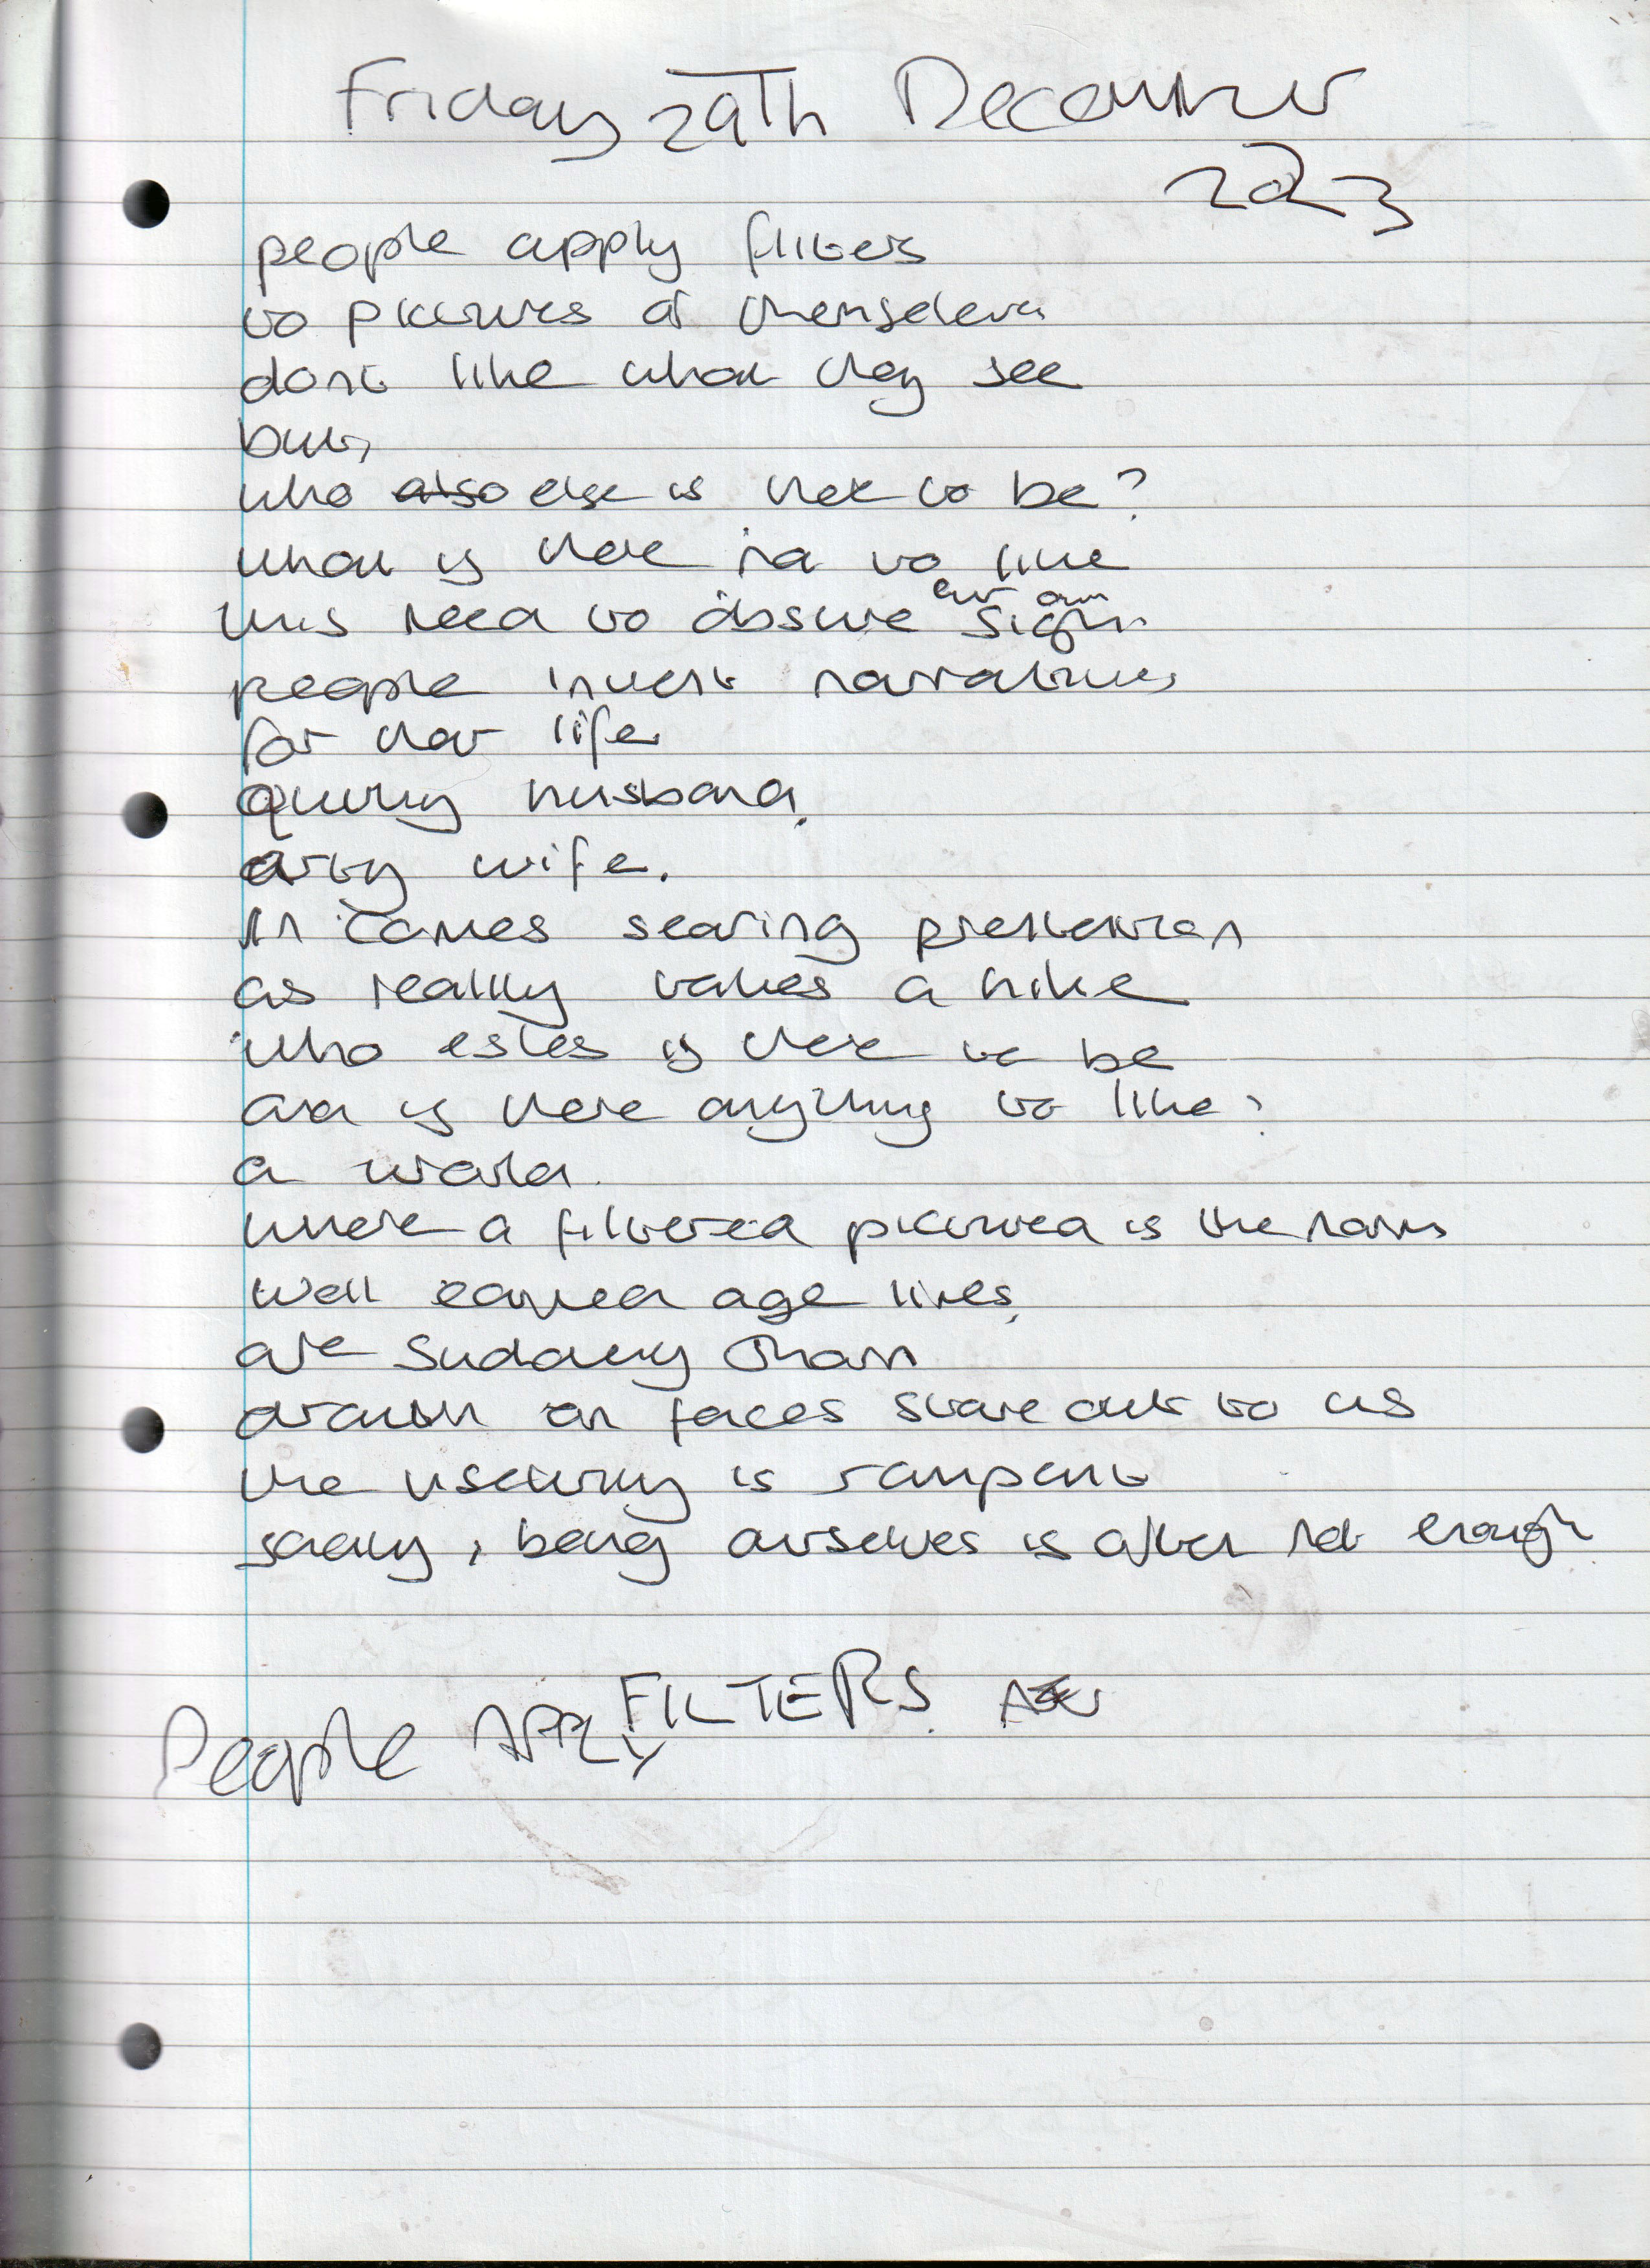 Friday 29Th December
2023
people apply filters
to pictures of themselves
dont like what they see
but,
who also else is there to be?
what is there not to like
this need to obscure our own sight
people invent narratives
for their life
quirky husband,
arty wife.
in comes searing pretention
as reality takes a hike
who is there to be
and is there anything to like?
a world
where a filtered picture is the norm
well earned age lines,
are suddenly
drawn on faces stare out to us
the is rampant
sadly, being ourselves is often not enough
FILTERS
People APPLY